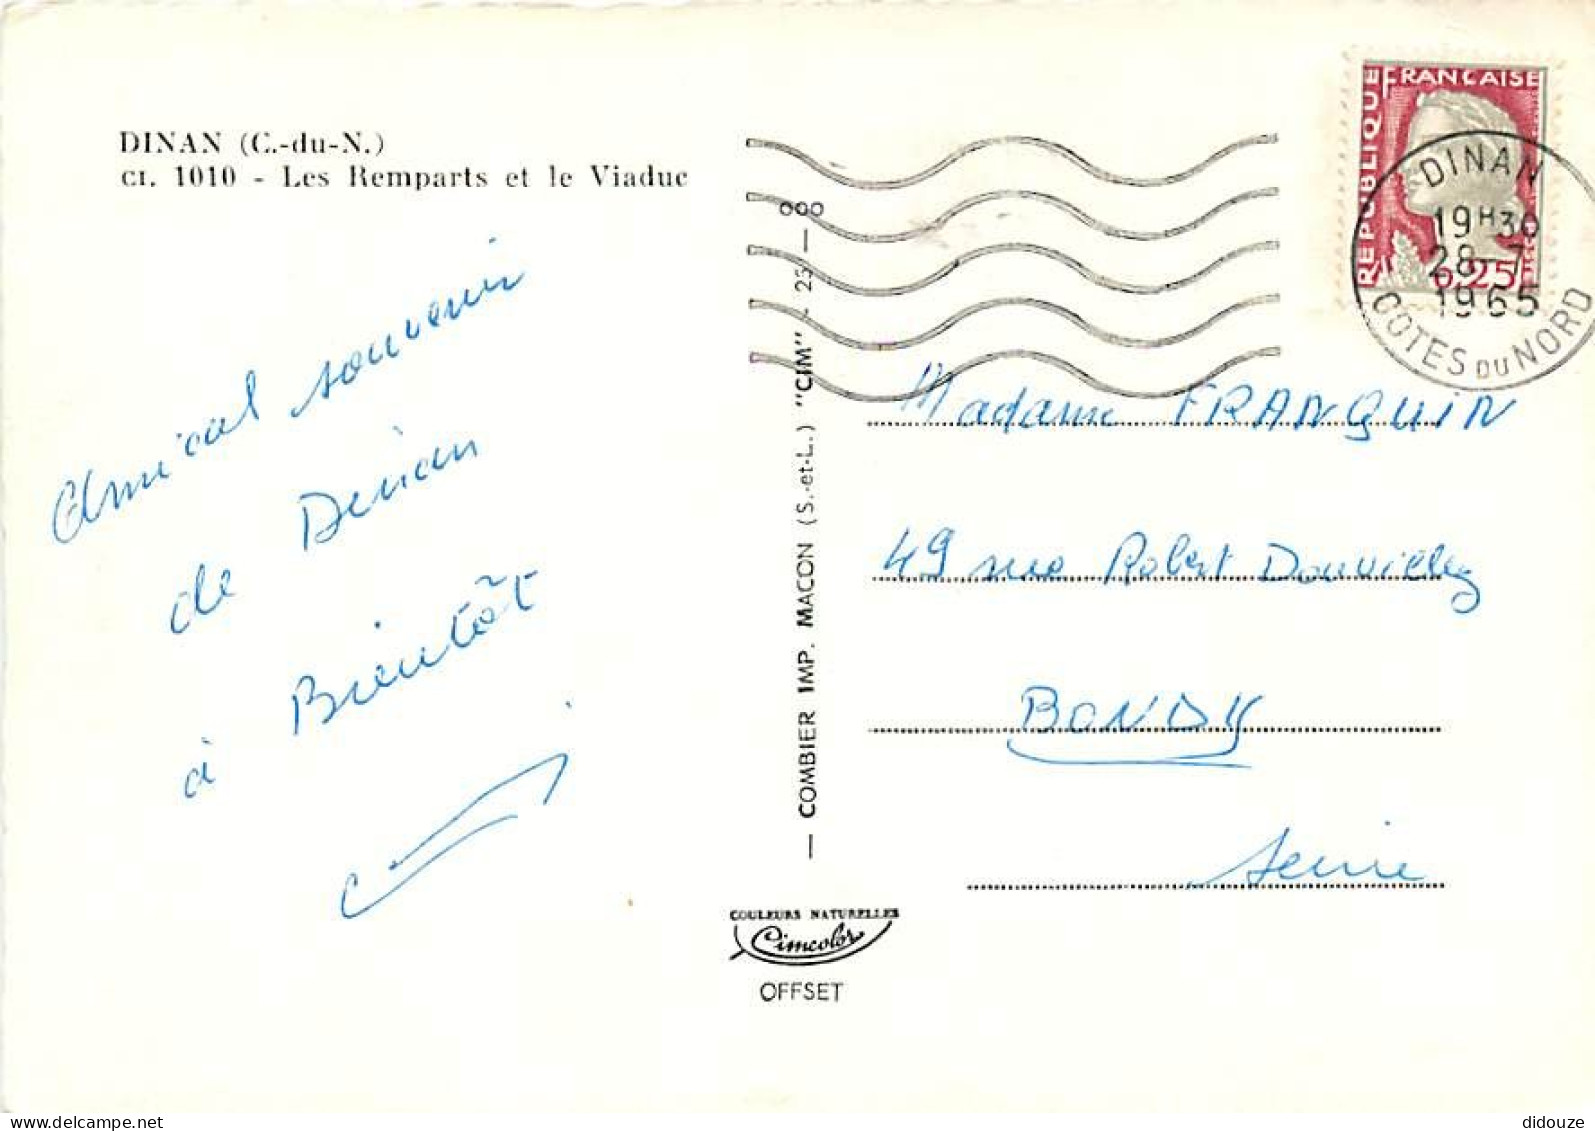 DINAN (C.-du-N.)
CI. 1010 - Les Remparts et le Viaduc
Amical souvenir
de Dinan
à Bientôt
— COMBIER IMP. MACON (S.-et-L.) "CIM" - 23 — 000
COULEURS NATURELLES
Cimcolor
OFFSET
REPUBLIQUE FRANCAISE
0,25
DINAN
19H30
28-7
1965
COTES DU NORD
Madame FRANQUIN
49 rue Robert
BONDY
Seine
delcampe.net
didouze